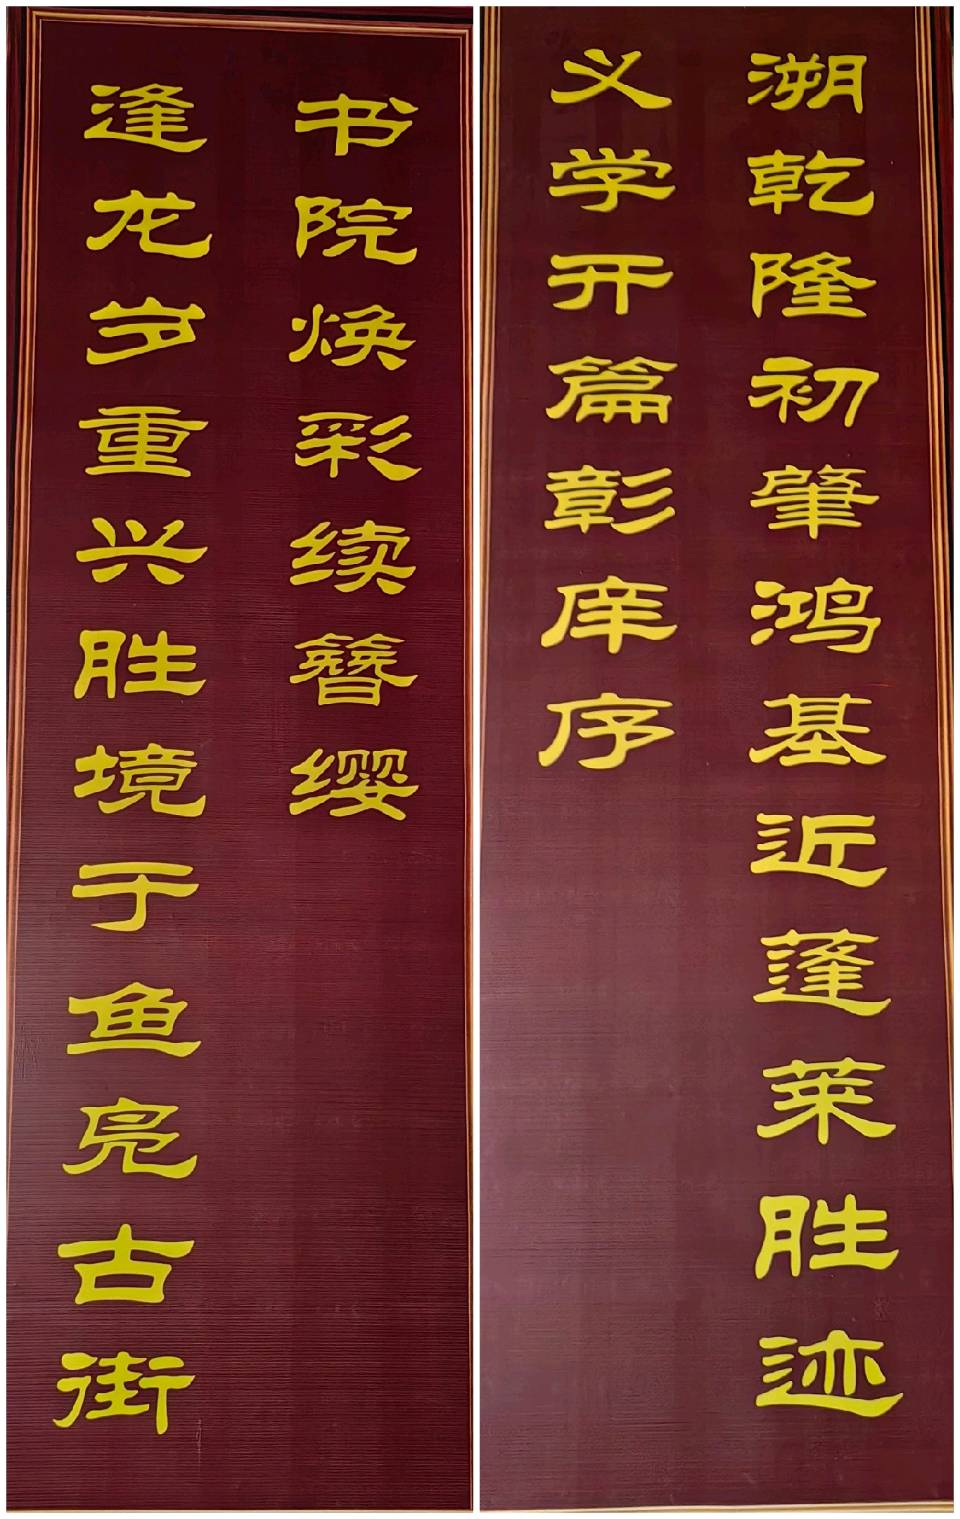 溯乾隆初肇鸿基近蓬莱胜迹
义学开篇彰庠序
逢龙岁重兴胜境于鱼凫古街
书院焕彩续簪缨